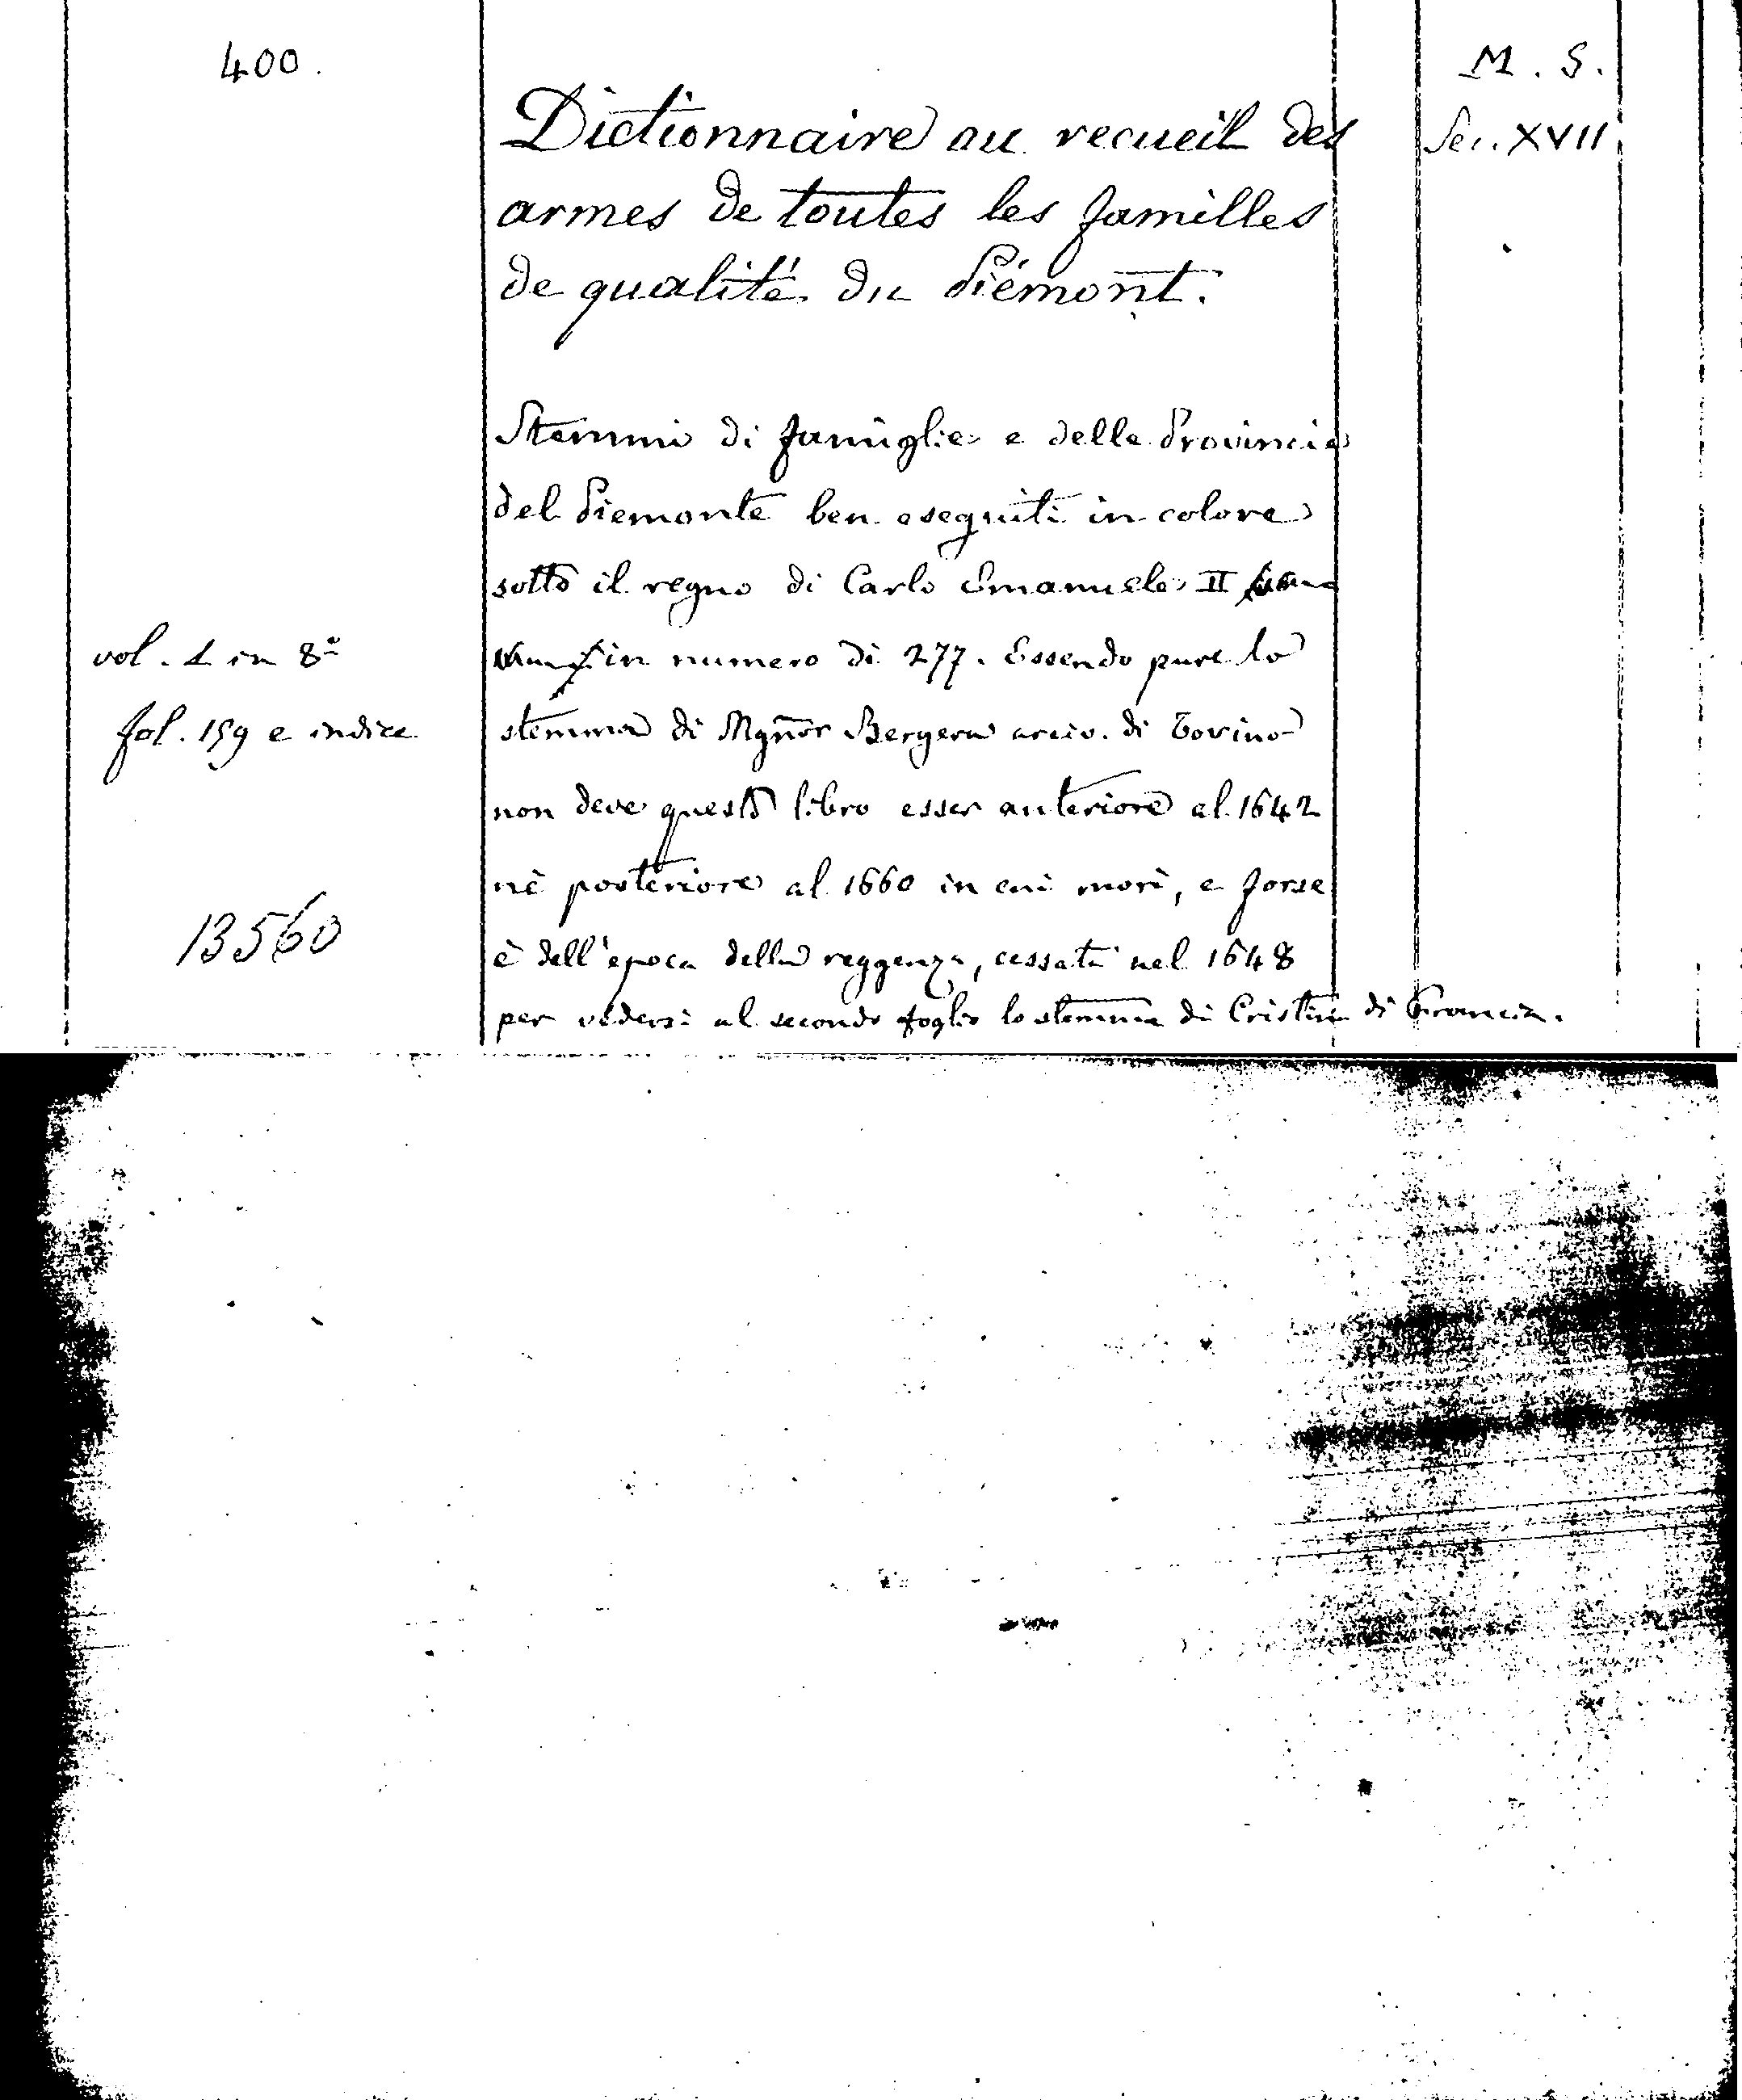 400.
M. S.
Sec. XVII
Dictionnaire ou recueil des
armes de toutes les familles
de qualité du Piémont.
Stemmi di famiglie e delle Provincie
del Piemonte ben eseguiti in colore
sotto il regno di Carlo Emanuele II
in numero di 277. Essendo pure lo
stemma di Mgnor Bergera arciv. di Torino
non deve questo libro esser anteriore al 1642
nè posteriore al 1660 in cui morì, e forse
è dell'epoca della reggenza, cessata nel 1648
per vedersi al secondo foglio lo stemma di Cristina di Francia.
vol. 1 in 8°
fol. 159 e indice
13560